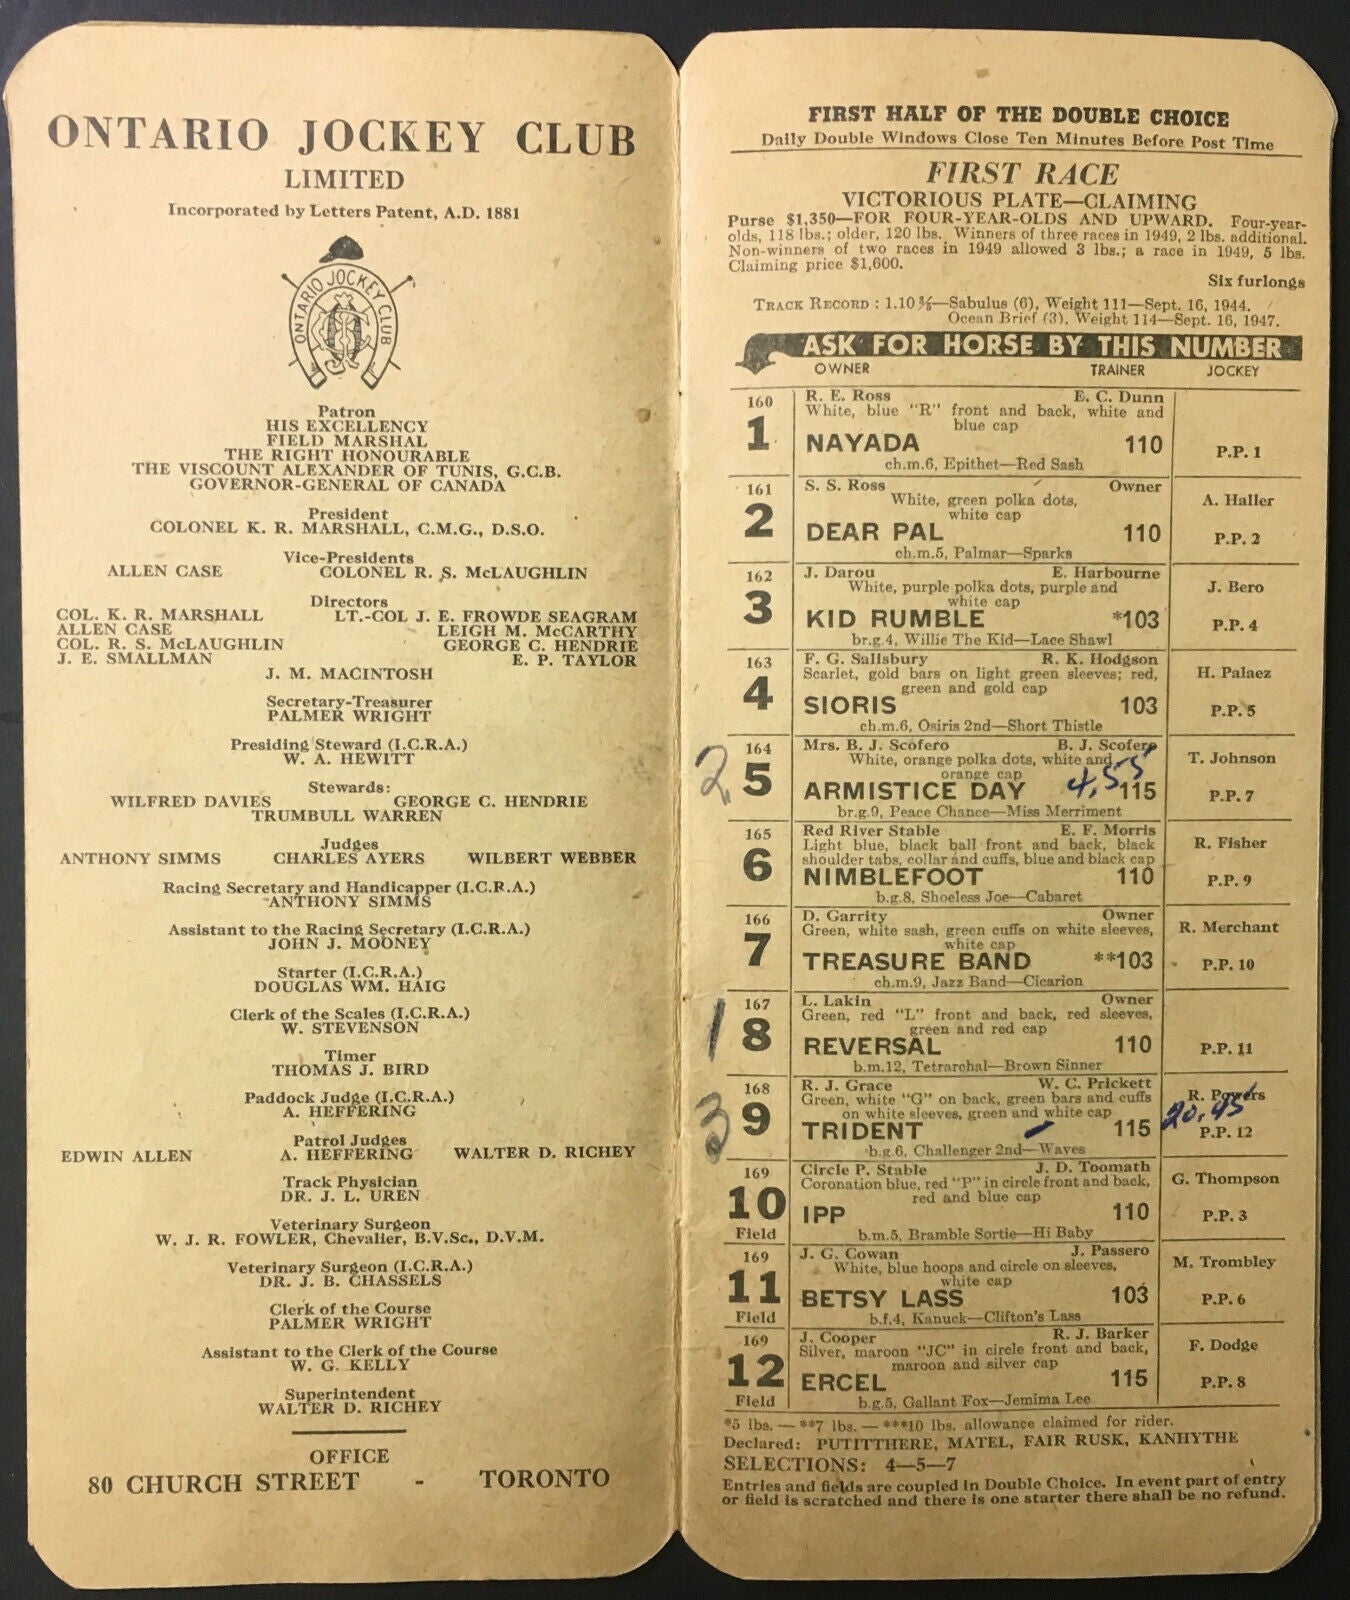 ONTARIO JOCKEY CLUB
LIMITED
Incorporated by Letters Patent, A.D. 1881
ONTARIO JOCKEY CLUB
Patron
HIS EXCELLENCY
FIELD MARSHAL
THE RIGHT HONOURABLE
THE VISCOUNT ALEXANDER OF TUNIS, G.C.B.
GOVERNOR-GENERAL OF CANADA
President
COLONEL K. R. MARSHALL, C.M.G., D.S.O.
Vice-Presidents
ALLEN CASE COLONEL R. S. McLAUGHLIN
Directors
COL. K. R. MARSHALL LT.-COL J. E. FROWDE SEAGRAM
ALLEN CASE LEIGH M. McCARTHY
COL. R. S. McLAUGHLIN GEORGE C. HENDRIE
J. E. SMALLMAN E. P. TAYLOR
J. M. MACINTOSH
Secretary-Treasurer
PALMER WRIGHT
Presiding Steward (I.C.R.A.)
W. A. HEWITT
Stewards:
WILFRED DAVIES GEORGE C. HENDRIE
TRUMBULL WARREN
Judges
ANTHONY SIMMS CHARLES AYERS WILBERT WEBBER
Racing Secretary and Handicapper (I.C.R.A.)
ANTHONY SIMMS
Assistant to the Racing Secretary (I.C.R.A.)
JOHN J. MOONEY
Starter (I.C.R.A.)
DOUGLAS WM. HAIG
Clerk of the Scales (I.C.R.A.)
W. STEVENSON
Timer
THOMAS J. BIRD
Paddock Judge (I.C.R.A.)
A. HEFFERING
Patrol Judges
EDWIN ALLEN A. HEFFERING WALTER D. RICHEY
Track Physician
DR. J. L. UREN
Veterinary Surgeon
W. J. R. FOWLER, Chevalier, B.V.Sc., D.V.M.
Veterinary Surgeon (I.C.R.A.)
DR. J. B. CHASSELS
Clerk of the Course
PALMER WRIGHT
Assistant to the Clerk of the Course
W. G. KELLY
Superintendent
WALTER D. RICHEY
OFFICE
80 CHURCH STREET - TORONTO
FIRST HALF OF THE DOUBLE CHOICE
Daily Double Windows Close Ten Minutes Before Post Time
FIRST RACE
VICTORIOUS PLATE—CLAIMING
Purse $1,350—FOR FOUR-YEAR-OLDS AND UPWARD. Four-year-
olds, 118 lbs.; older, 120 lbs. Winners of three races in 1949, 2 lbs. additional.
Non-winners of two races in 1949 allowed 3 lbs.; a race in 1949, 5 lbs.
Claiming price $1,600.
Six furlongs
TRACK RECORD: 1.10 —Sabulus (6), Weight 111—Sept. 16, 1944.
Ocean Brief (3), Weight 114—Sept. 16, 1947.
ASK FOR HORSE BY THIS NUMBER
OWNER TRAINER JOCKEY
160 R. E. Ross E. C. Dunn
White, blue "R" front and back, white and
blue cap
1 NAYADA 110 P.P. 1
ch.m.6, Epithet—Red Sash
161 S. S. Ross Owner
White, green polka dots, A. Haller
white cap
2 DEAR PAL 110 P.P. 2
ch.m.5, Palmar—Sparks
162 J. Darou E. Harbourne
White, purple polka dots, purple and J. Bero
white cap
3 KID RUMBLE *103 P.P. 4
br.g.4, Willie The Kid—Lace Shawl
163 F. G. Salisbury R. K. Hodgson
Scarlet, gold bars on light green sleeves; red, H. Palaez
green and gold cap
4 SIORIS 103 P.P. 5
ch.m.6, Osiris 2nd—Short Thistle
164 Mrs. B. J. Scofero B. J. Scofero
White, orange polka dots, white and T. Johnson
orange cap
2 5 ARMISTICE DAY 4,55 115 P.P. 7
br.g.9, Peace Chance—Miss Merriment
165 Red River Stable E. F. Morris
Light blue, black ball front and back, black R. Fisher
shoulder tabs, collar and cuffs, blue and black cap
6 NIMBLEFOOT 110 P.P. 9
b.g.8, Shoeless Joe—Cabaret
166 D. Garrity Owner
Green, white sash, green cuffs on white sleeves, R. Merchant
white cap
7 TREASURE BAND **103 P.P. 10
ch.m.9, Jazz Band—Cicarion
167 L. Lakin Owner
Green, red "L" front and back, red sleeves,
green and red cap
1 8 REVERSAL 110 P.P. 11
b.m.12, Tetrarchal—Brown Sinner
168 R. J. Grace W. C. Prickett
Green, white "G" on back, green bars and cuffs R. Powers
on white sleeves, green and white cap 20,45
3 9 TRIDENT 115 P.P. 12
b.g.6, Challenger 2nd—Waves
169 Circle P. Stable J. D. Toomath
Coronation blue, red "P" in circle front and back, G. Thompson
red and blue cap
10 IPP 110 P.P. 3
Field b.m.5, Bramble Sortie—Hi Baby
169 J. G. Cowan J. Passero
White, blue hoops and circle on sleeves, M. Trombley
white cap
11 BETSY LASS 103 P.P. 6
Field b.f.4, Kanuck—Clifton's Lass
169 J. Cooper R. J. Barker
Silver, maroon "JC" in circle front and back, F. Dodge
maroon and silver cap
12 ERCEL 115 P.P. 8
Field b.g.5, Gallant Fox—Jemima Lee
*5 lbs. — **7 lbs. — ***10 lbs. allowance claimed for rider.
Declared: PUTITTHERE, MATEL, FAIR RUSK, KANHYTHE
SELECTIONS: 4—5—7
Entries and fields are coupled in Double Choice. In event part of entry
or field is scratched and there is one starter there shall be no refund.